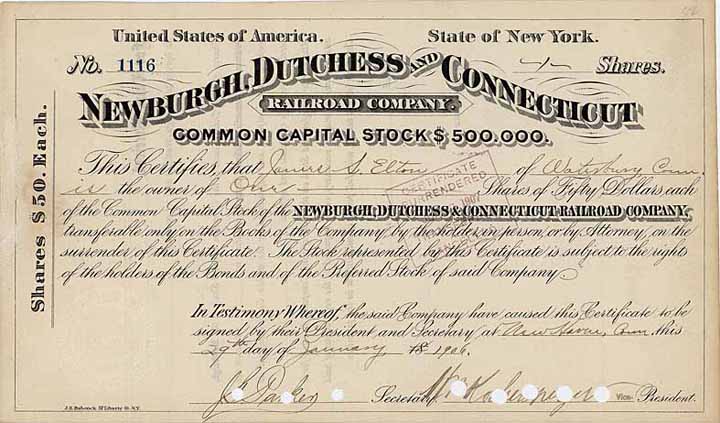 United States of America. State of New York.
No. 1116 -1- Shares.
NEWBURGH, DUTCHESS AND CONNECTICUT
RAILROAD COMPANY.
COMMON CAPITAL STOCK $500.000.
Shares $50. Each.
This Certifies, that S. Elton of Waterbury Conn.
is the owner of One Shares of Fifty Dollars each
of the Common Capital Stock of the NEWBURGH, DUTCHESS & CONNECTICUT RAILROAD COMPANY,
transferable only on the Books of the Company by the holder in person, or by Attorney, on the
surrender of this Certificate. The Stock represented by this Certificate is subject to the rights
of the holders of the Bonds and of the Preferred Stock of said Company.
CERTIFICATE
SURRENDERED
1907
In Testimony Whereof, the said Company have caused this Certificate to be
signed by their President and Secretary at New Haven, Conn. this
29th day of January 18 1906.
Secretary. Vice- President.